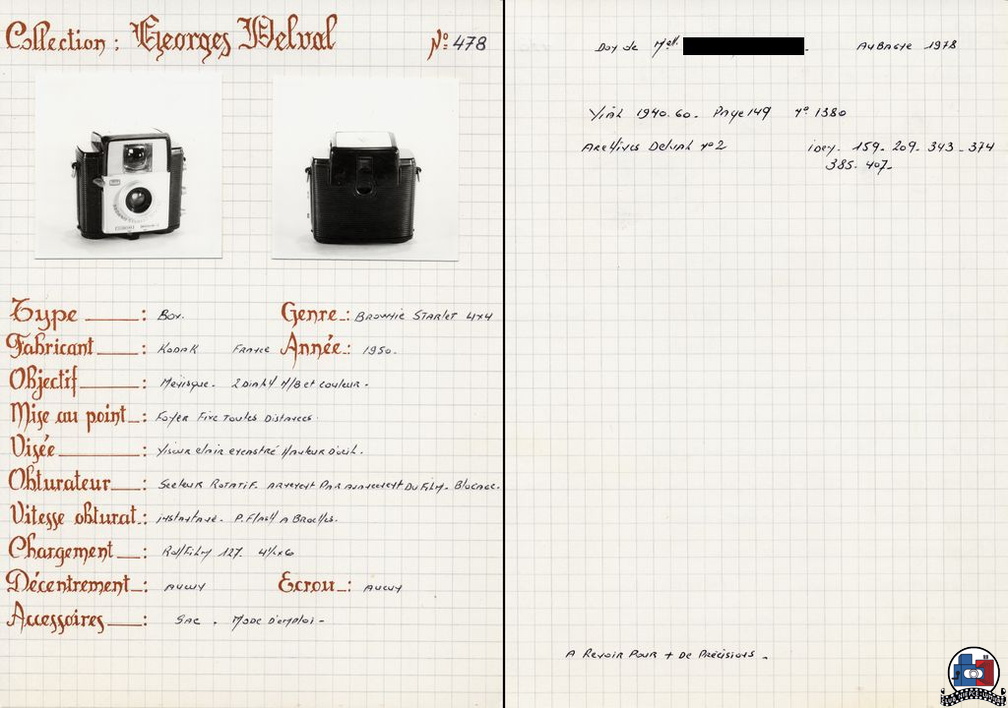 Collection : Georges Delval Nº 478
Type : Box.
Genre : Brownie Starlet 4x4
Fabricant : Kodak France
Année : 1950.
Objectif : Ménisque. 2 Diaph N/B et couleur.
Mise au point : Foyer Fixe Toutes Distances.
Visée : Viseur clair excentré Hauteur D'œil.
Obturateur : Secteur Rotatif. Armement Par avancement Du Film. Blocage.
Vitesse obturat : instantané. P. Flash A Broches.
Chargement : Roll Film 127.
Décentrement : Aucun
Ecrou : Aucun
Accessoires : Sac. Mode d'emploi -
Don de Mell. Aubagne 1978
Vial 1940.60. Page 149 nº 1380
Archives Delval nº 2
idem. 159. 209. 343 - 374
385. 407.
A Revoir Pour + De Précisions.